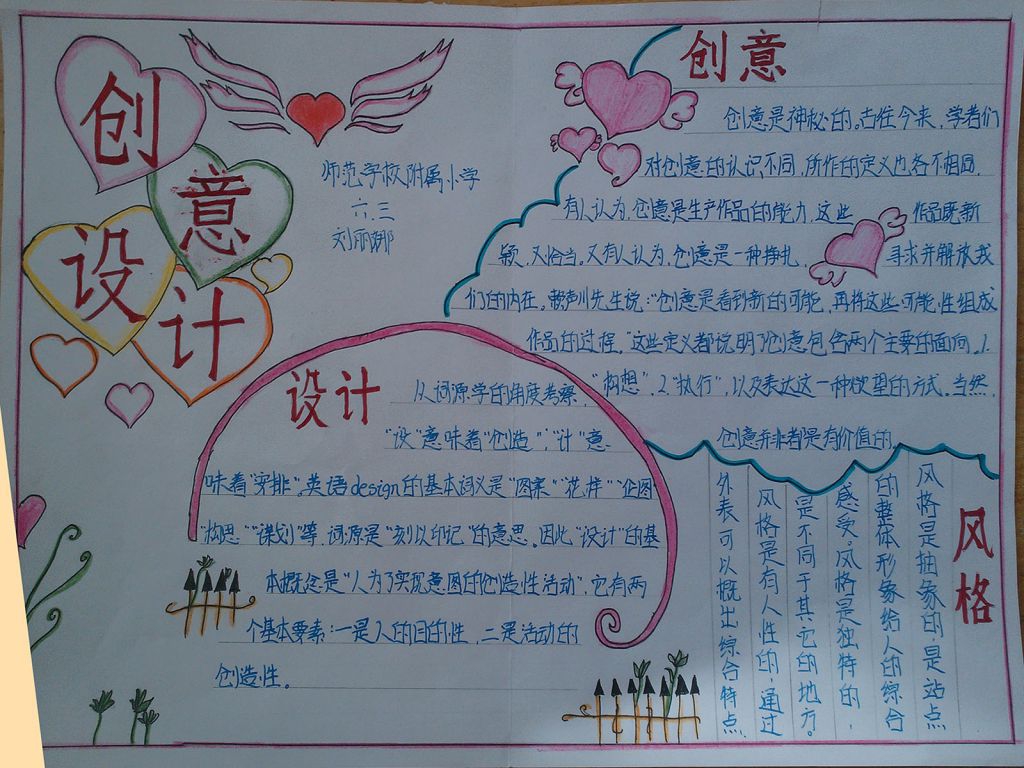 创意
设计
师范学校附属小学
六.三
刘丽娜
创意
创意是神秘的。古往今来,学者们
对创意的认识不同,所作的定义也各不相同,
有人认为,创意是生产作品的能力,这些 作品既新
颖,又恰当。又有人认为,创意是一种挣扎, 寻求并解放我
们的内在。赖声川先生说:“创意是看到新的可能,再将这些可能性组成
作品的过程。”这些定义都说明了创意包含两个主要的面向。1.
“构想”,2.“执行”,以及表达这一种欲望的方式。当然,
创意并非都是有价值的。
设计
从词源学的角度考察,
“设”意味着“创造”,“计”意
味着“安排”。英语design的基本词义是“图案”“花样”“企图”
“构思”“谋划”等,词源是“刻以印记”的意思。因此“设计”的基
本概念是“人为了实现意图的创造性活动”,它有两
个基本要素:一是人的目的性,二是活动的
创造性。
风格
风格是抽象的,是站点
的整体形象给人的综合
感受。风格是独特的,
是不同于其它的地方。
风格是有人性的,通过
外表可以概出综合特点.